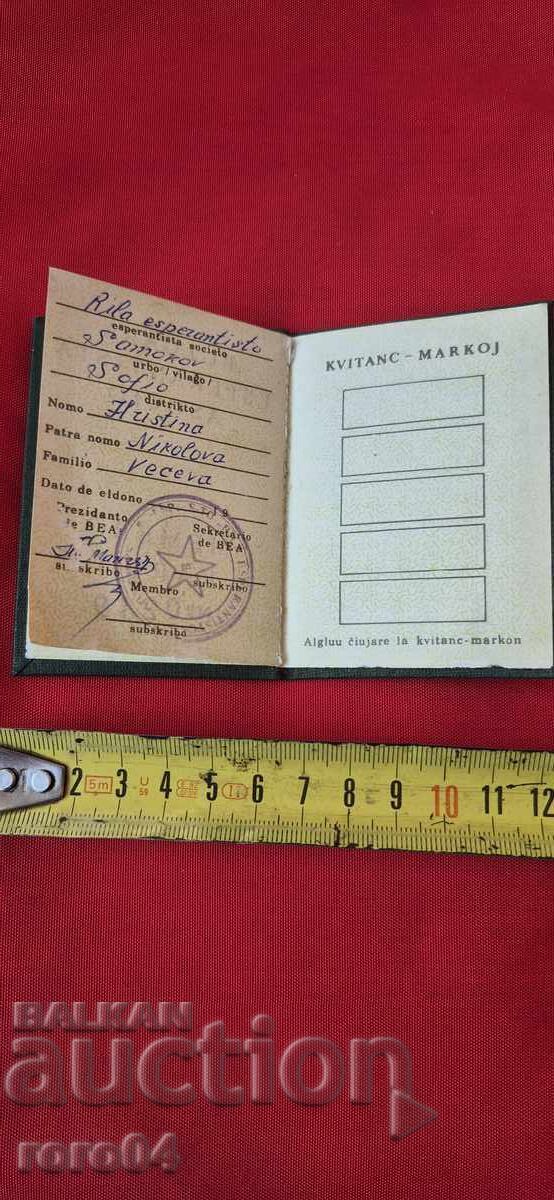 Rila esperantisto
esperantista societo
Samokov
urbo /vilago/
Sofio
distrikto
Nomo Hristina
Patra nomo Nikolova
Familio Veceva
Dato de eldono 19
Prezidanto
de BEA:
Sekretario
de BEA
subskribo
subskribo
Membro
subskribo
KVITANC - MARKOJ
Algluu ĉiujare la kvitanc-markon
2 5m 3 4 5 6 7 8 9 10 11 12
BALKAN
auction
roro04